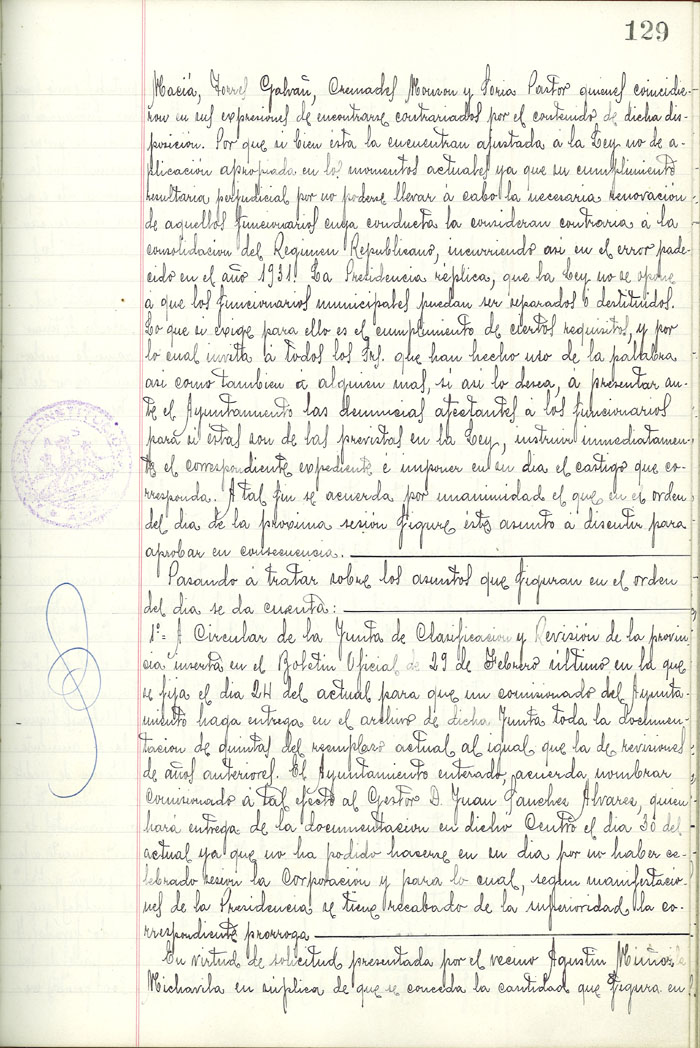 129
Maciá, Torres Galvañ, Cremades Monzon y Soria Pastor quienes coincidie-
ron en sus expresiones de encontrarse contrariados por el contenido de dicha dis-
posición. Por que si bien ésta la encuentran ajustada á la Ley no de a-
plicación apropiada en los momentos actuales ya que su cumplimiento
resultaria perjudicial por no poderse llevar á cabo la necesaria renovación
de aquellos funcionarios cuya conducta la consideran contraria á la
consolidacion del Regimen Republicano, incurriendo asi en el error pade-
cido en el año 1931. La Presidencia replica, que la Ley no se opone
á que los funcionarios municipales puedan ser separados ó destituidos.
Lo que si exige para ello es el cumplimiento de ciertos requisitos, y por
lo cual invita á todos los Srs. que han hecho uso de la palabra
asi como tambien a alguien mas, si asi lo desea, a presentar an-
te el Ayuntamiento las denuncias afectantes á los funcionarios
para si estas son de las previstas en la Ley, instruir inmediatamen-
te el correspondiente expediente e imponer en su dia el castigo que co-
rresponda. A tal fin se acuerda por unanimidad el que en el orden
del dia de la proxima sesión figure éste asunto á discutir para
aprobar en consecuencia.
Pasando á tratar sobre los asuntos que figuran en el orden
del dia se da cuenta:
1º= A Circular de la Junta de Clasificacion y Revisión de la provin
cia inserta en el Boletin Oficial de 29 de Febrero último en la que
se fija el dia 24 del actual para que un comisionado del Ayunta-
miento haga entrega en el archivo de dicha Junta toda la documen-
tacion de quintas del reemplazo actual al igual que la de revisiones
de años anteriores. El Ayuntamiento enterado, acuerda nombrar
Comisionado á tal efecto al Gestor D. Juan Sanchez Alvares, quien
hará entrega de la documentacion en dicho Centro el dia 30 del
actual ya que no ha podido hacerse en su dia por no haber ce-
lebrado sesion la Corporación y para lo cual, segun manifestacio-
nes de la Presidencia se tiene recabado de la superioridad la co-
rrespondiente prorroga
En virtud de solicitud presentada por el vecino Agustin Muñoz
Michavila en súplica de que se conceda la cantidad que figura en